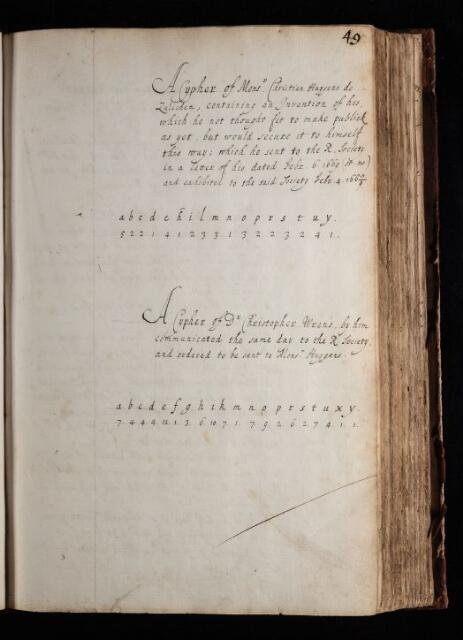 49
A Cypher of Monsr. Christian Hugens de
Zulichen, containing an Invention of his,
which he not thought fit to make publick
as yet, but would secure it to himself
this way: which he sent to the R. Society
in a letter of his dated Febr. 6. 1669 (st. no)
and exhibited to the said Society Febr. 4. 166
a b c d e h i l m n o p r s t u y.
5 2 2 1 4 1 2 3 3 1 3 2 2 3 2 4 1.
A Cypher of Dr Christopher Wrens, by him
communicated the same day to the R. Society
and ordered to be sent to Monsr. Hugens.
a b c d e f g h i k m n o p r s t u x y.
7. 4. 4. 4. 12. 1. 3. 6. 10. 7. 1. 7. 9. 2. 6. 2. 7. 4. 1. 1.